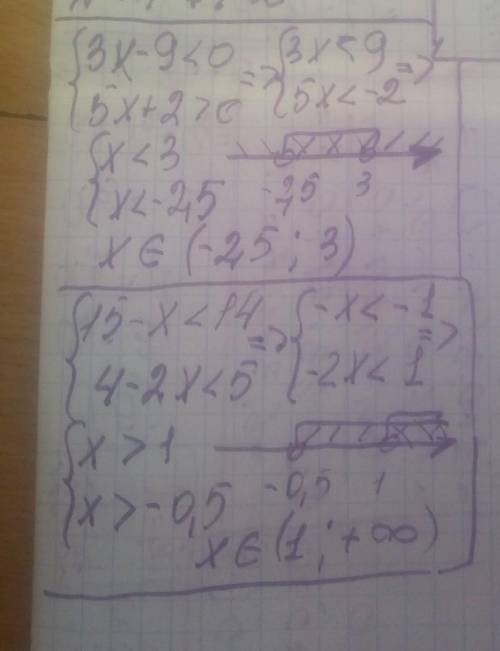 {3x-9<0 => {3x<9 =>
{5x+2>0 {5x<-2
{x<3
{x<-2,5 -2,5 3
x∈(-2,5; 3)
{15-x<14 => {-x<-1 =>
{4-2x<5 {-2x<1
{x>1
{x>-0,5 -0,5 1
x∈(1;+∞)